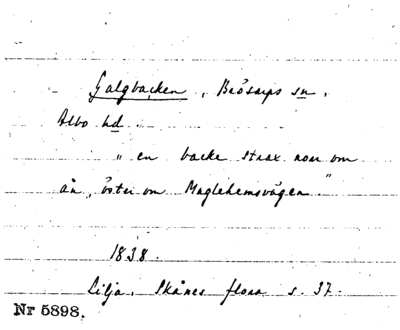 Galgbacken, Brösarps sn,
Albo hd.
" en backe strax norr om
ån, öster om Maglehemsvägen."
1838.
Lilja, Skånes flora s. 37.
Nr 5898.